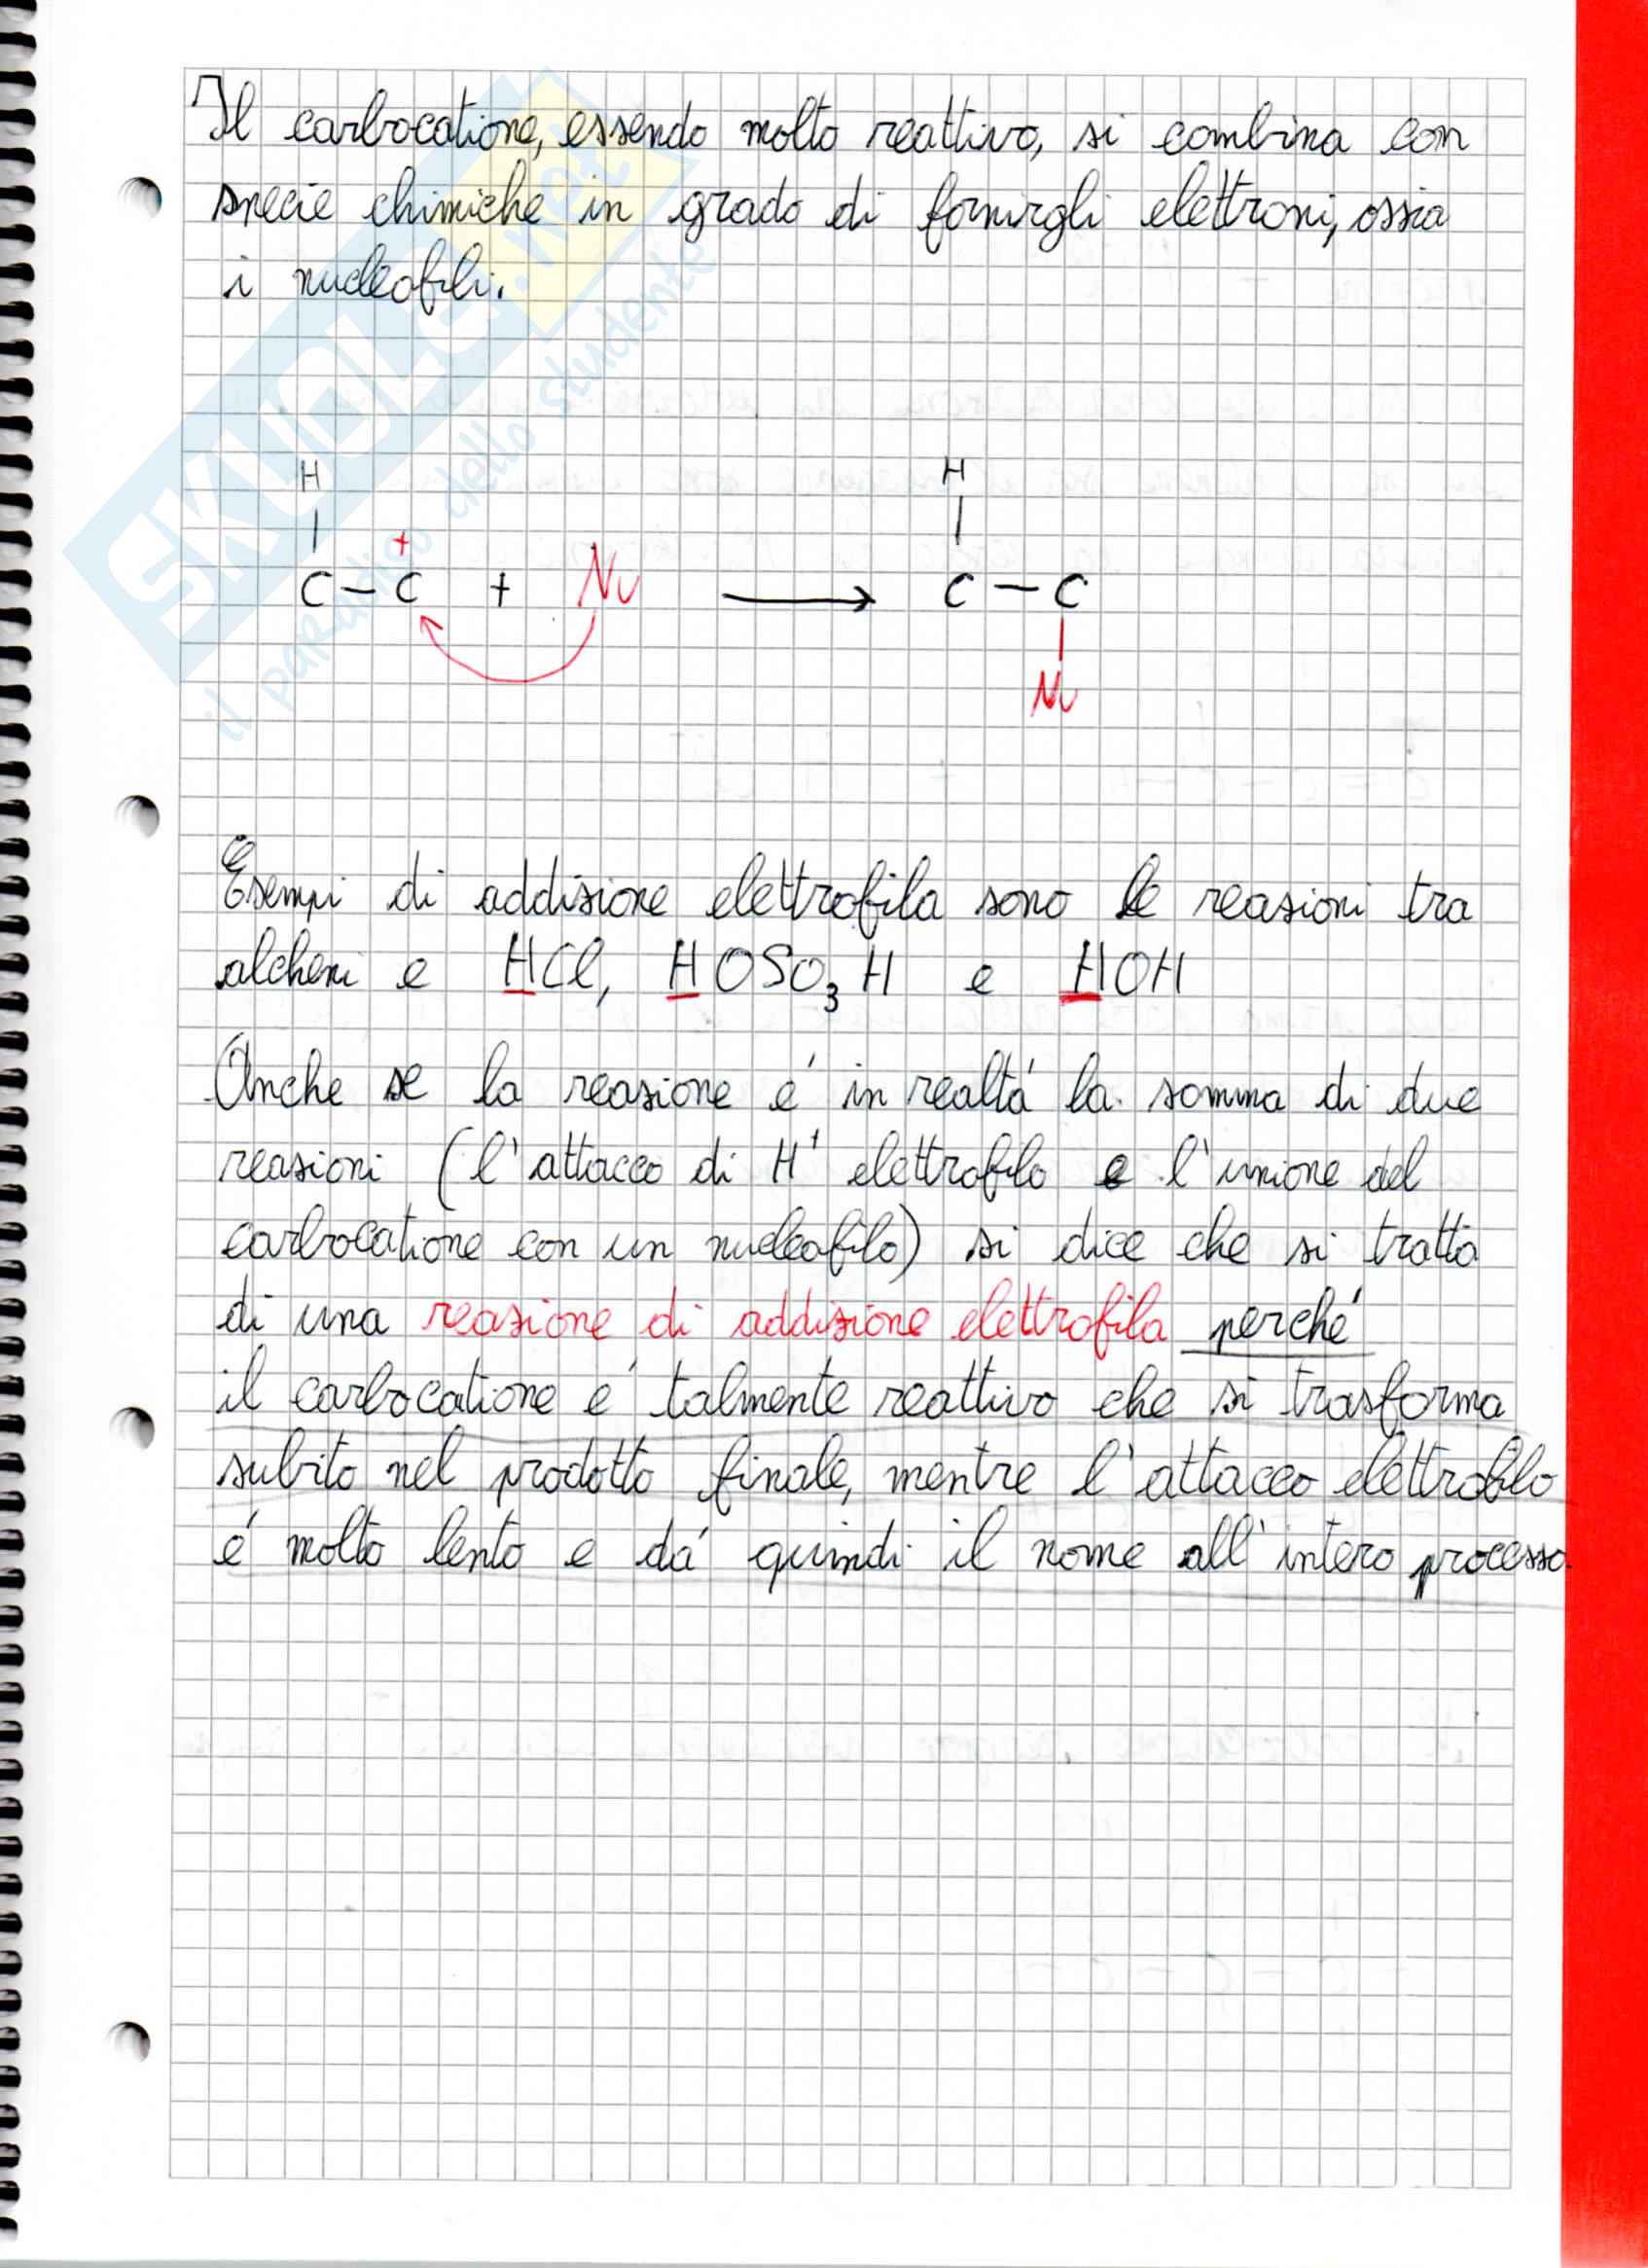 Il carbocatione, essendo molto reattivo, si combina con
specie chimiche in grado di fornirgli elettroni, ossia
i nucleofili.
SKUOLA.net
il paradiso dello studente
H H
| |
C – C⁺ + Nu ⟶ C – C
|
Nu
Esempi di addizione elettrofila sono le reazioni tra
alcheni e HCl, HOSO₃H e HOH
Anche se la reazione é in realtá la somma di due
reazioni (l'attacco di H⁺ elettrofilo e l'unione del
carbocatione con un nucleofilo) si dice che si tratta
di una reazione di addizione elettrofila perché
il carbocatione é talmente reattivo che si trasforma
subito nel prodotto finale, mentre l'attacco elettrofilo
é molto lento e dá quindi il nome all'intero processo.